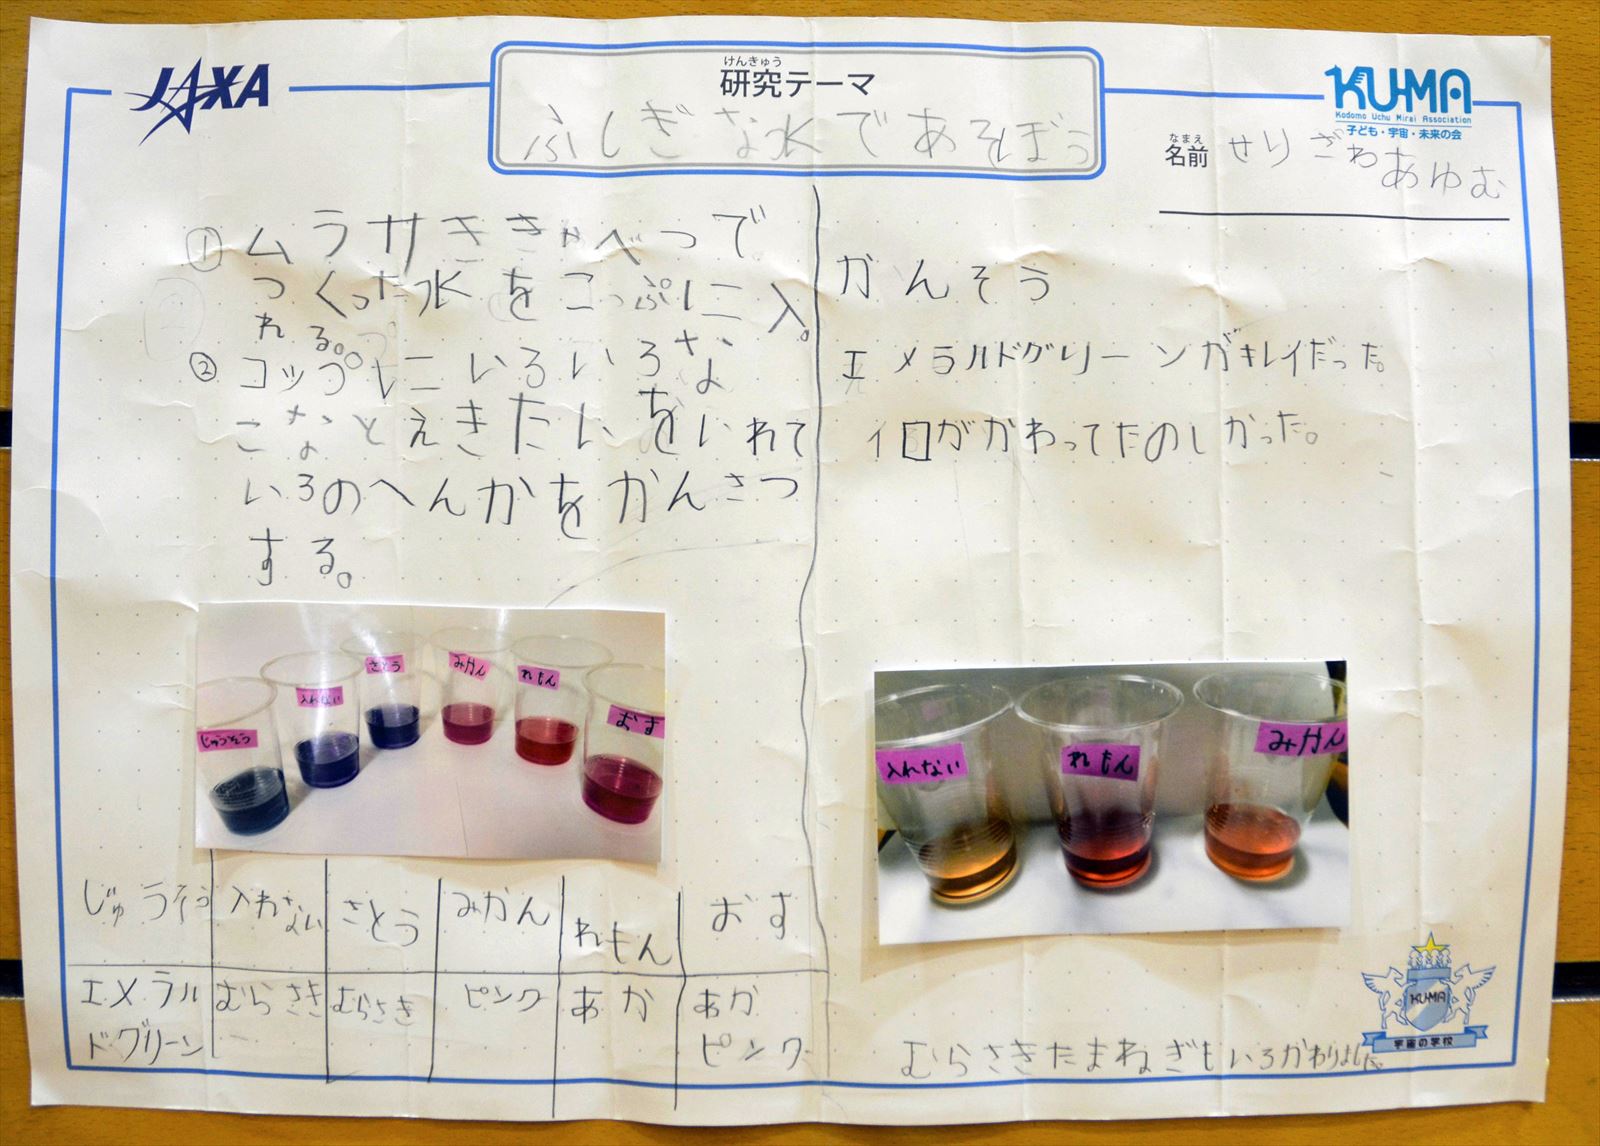 JAXA
けんきゅう
研究テーマ
ふしぎな水であそぼう
KU-MA
Kodomo Uchu Mirai Association
子ども・宇宙・未来の会
なまえ
名前 せりざわあゆむ
① ムラサききゃべつで
つくった水をこっぷに入
れる。
② コップにいろいろな
こなとえきたいをいれて
いろのへんかをかんさつ
する。
かんそう
エメラルドグリーンがキレイだった。
イロがかわってたのしかった。
じゅうそう
入れない
さとう
みかん
れもん
おす
入れない
れもん
みかん
じゅうそう 入れない さとう みかん れもん おす
エメラルドグリーン むらさき むらさき ピンク あか あかピンク
むらさきたまねぎもいろかわりました。
KU-MA
宇宙の学校